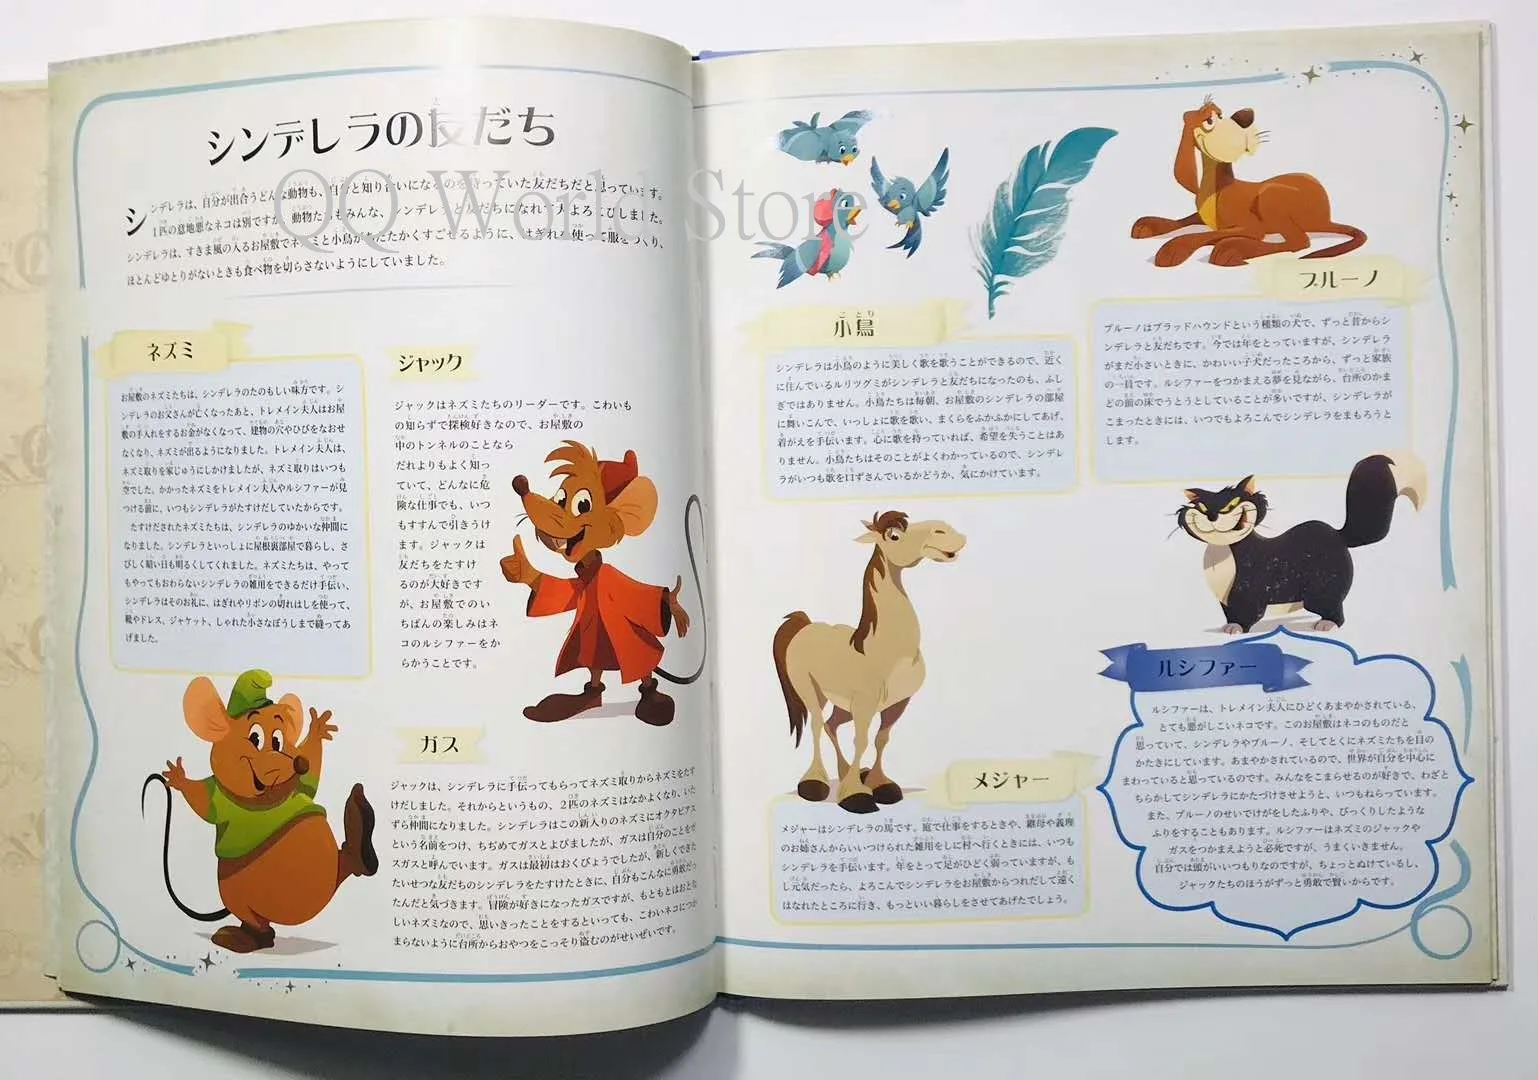 シンデレラの友だち
シンデレラは、自分が出合うどんな動物も、自分と知り合いになるのを待っていた友だちだと思っています。
1匹の意地悪なネコは別ですが、動物たちもみんな、シンデレラと友だちになれてよろこびました。
シンデレラは、すきま風の入るお屋敷でネズミと小鳥があたたかくすごせるように、はぎれを使って服をつくり、
ほとんどゆとりがないときも食べ物を切らさないようにしていました。
QQ World Store
ネズミ
お屋敷のネズミたちは、シンデレラのたのもしい味方です。シ
ンデレラのお父さんが亡くなったあと、トレメイン夫人はお屋
敷の手入れをするお金がなくなって、建物の穴やひびをなおせ
なくなり、ネズミが出るようになりました。トレメイン夫人は、
ネズミ取りを家じゅうにしかけましたが、ネズミ取りはいつも
空でした。かかったネズミをトレメイン夫人やルシファーが見
つける前に、いつもシンデレラがたすけだしていたからです。
たすけだされたネズミたちは、シンデレラのゆかいな仲間に
なりました。シンデレラといっしょに屋根裏部屋で暮らし、さ
びしく暗い日も明るくしてくれました。ネズミたちは、やって
もやってもおわらないシンデレラの雑用をできるだけ手伝い、
シンデレラはそのお礼に、はぎれやリボンの切れはしを使って、
靴やドレス、ジャケット、しゃれた小さなぼうしまで縫ってあ
げました。
ジャック
ジャックはネズミたちのリーダーです。こわいも
の知らずで探検好きなので、お屋敷の
中のトンネルのことなら
だれよりもよく知っ
ていて、どんなに危
険な仕事でも、いつ
もすすんで引きうけ
ます。ジャックは
友だちをたすけ
るのが大好きです
が、お屋敷でのい
ちばんの楽しみはネ
コのルシファーをか
らかうことです。
ガス
ジャックは、シンデレラに手伝ってもらってネズミ取りからネズミをたす
けだしました。それからというもの、2匹のネズミはなかよくなり、いた
ずら仲間になりました。シンデレラはこの新入りのネズミにオクタビアス
という名前をつけ、ちぢめてガスとよびましたが、ガスは自分のことをで
スガスと呼んでいます。ガスは最初はおくびょうでしたが、新しくできた
たいせつな友だちのシンデレラをたすけたときに、自分もこんなに勇敢だっ
たんだと気づきます。冒険が好きになったガスですが、もともとはおとな
しいネズミなので、思いきったことをするといっても、こわいネコにつか
まらないように台所からおやつをこっそり盗むのがせいぜいです。
小鳥
シンデレラは小鳥のように美しく歌を歌うことができるので、近く
に住んでいるルリツグミがシンデレラと友だちになったのも、ふし
ぎではありません。小鳥たちは毎朝、お屋敷のシンデレラの部屋
に舞いこんで、いっしょに歌を歌い、まくらをふかふかにしてあげ、
着がえを手伝います。心に歌を持っていれば、希望を失うことはあ
りません。小鳥たちはそのことがよくわかっているので、シンデレ
ラがいつも歌を口ずさんでいるかどうか、気にかけています。
ブルーノ
ブルーノはブラッドハウンドという種類の犬で、ずっと昔からシ
ンデレラと友だちです。今では年をとっていますが、シンデレラ
がまだ小さいときに、かわいい子犬だったころから、ずっと家族
の一員です。ルシファーをつかまえる夢を見ながら、台所のかま
どの前の床でうとうとしていることが多いですが、シンデレラが
こまったときには、いつでもよろこんでシンデレラをまもろうと
します。
メジャー
メジャーはシンデレラの馬です。庭で仕事をするときや、継母や義理
のお姉さんからいいつけられた雑用をしに村へ行くときには、いつも
シンデレラを手伝います。年をとって足がひどく弱っていますが、も
し元気だったら、よろこんでシンデレラをお屋敷からつれだして遠く
はなれたところに行き、もっといい暮らしをさせてあげたでしょう。
ルシファー
ルシファーは、トレメイン夫人にひどくあまやかされている、
とても悪がしこいネコです。このお屋敷はネコのものだと
思っていて、シンデレラやブルーノ、そしてとくにネズミたちを目の
かたきにしています。あまやかされているので、世界が自分を中心に
まわっていると思っているのです。みんなをこまらせるのが好きで、わざと
ちらかしてシンデレラにかたづけさせようと、いつもねらっています。
また、ブルーノのせいでけがをしたふりや、びっくりしたような
ふりをすることもあります。ルシファーはネズミのジャックや
ガスをつかまえようと必死ですが、うまくいきません。
自分では頭がいいつもりなのですが、ちょっとぬけているし、
ジャックたちのほうがずっと勇敢で賢いからです。